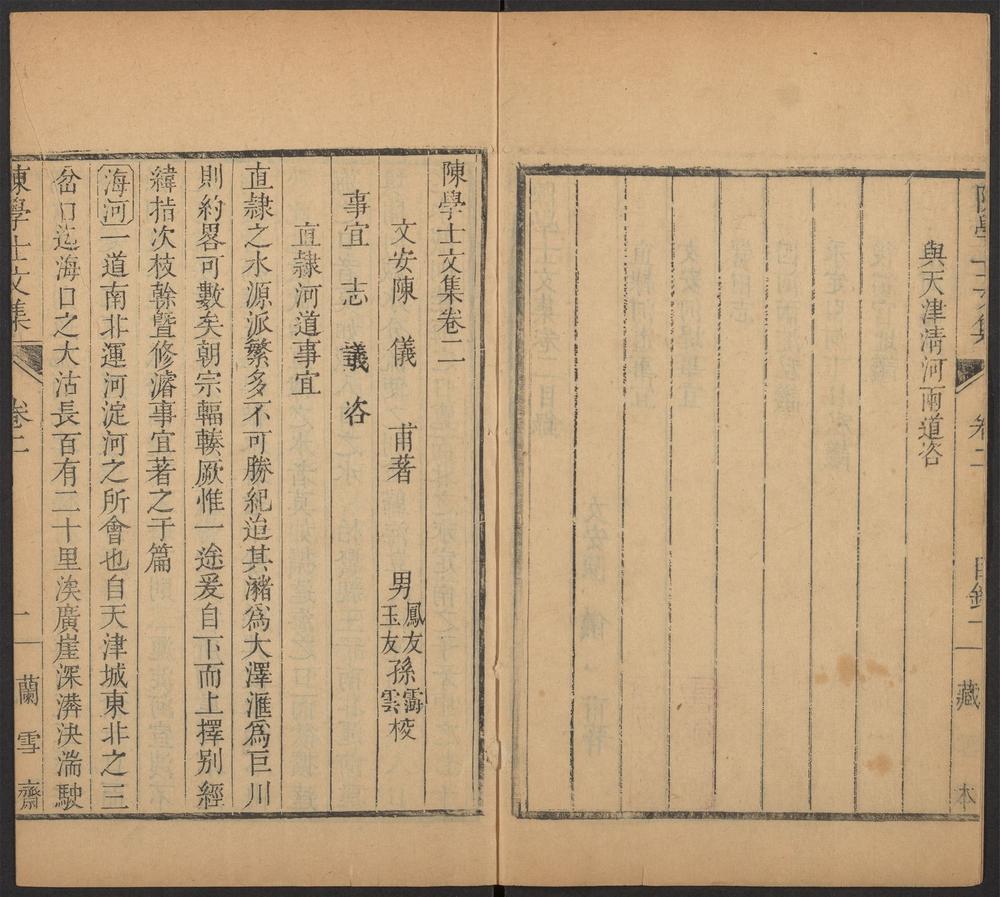 與天津清河兩道咨
陳學士文集
卷二
目錄二
藏
本
陳學士文集卷二
文安陳 儀 甫著 男鳳友玉友孫雲校
事宜 志 議 咨
直隸河道事宜
直隸之水源派繁多不可勝紀迨其瀦爲大澤滙爲巨川
則約畧可數矣朝宗輻輳厥惟一途爰自下而上擇别經
緯指次枝榦暨修濬事宜著之于篇
海河一道南北運河淀河之所會也自天津城東北之三
岔口迄海口之大沽長百有二十里涘廣崖深漭泱湍駛
陳學士文集
卷二
一
蘭雪齋